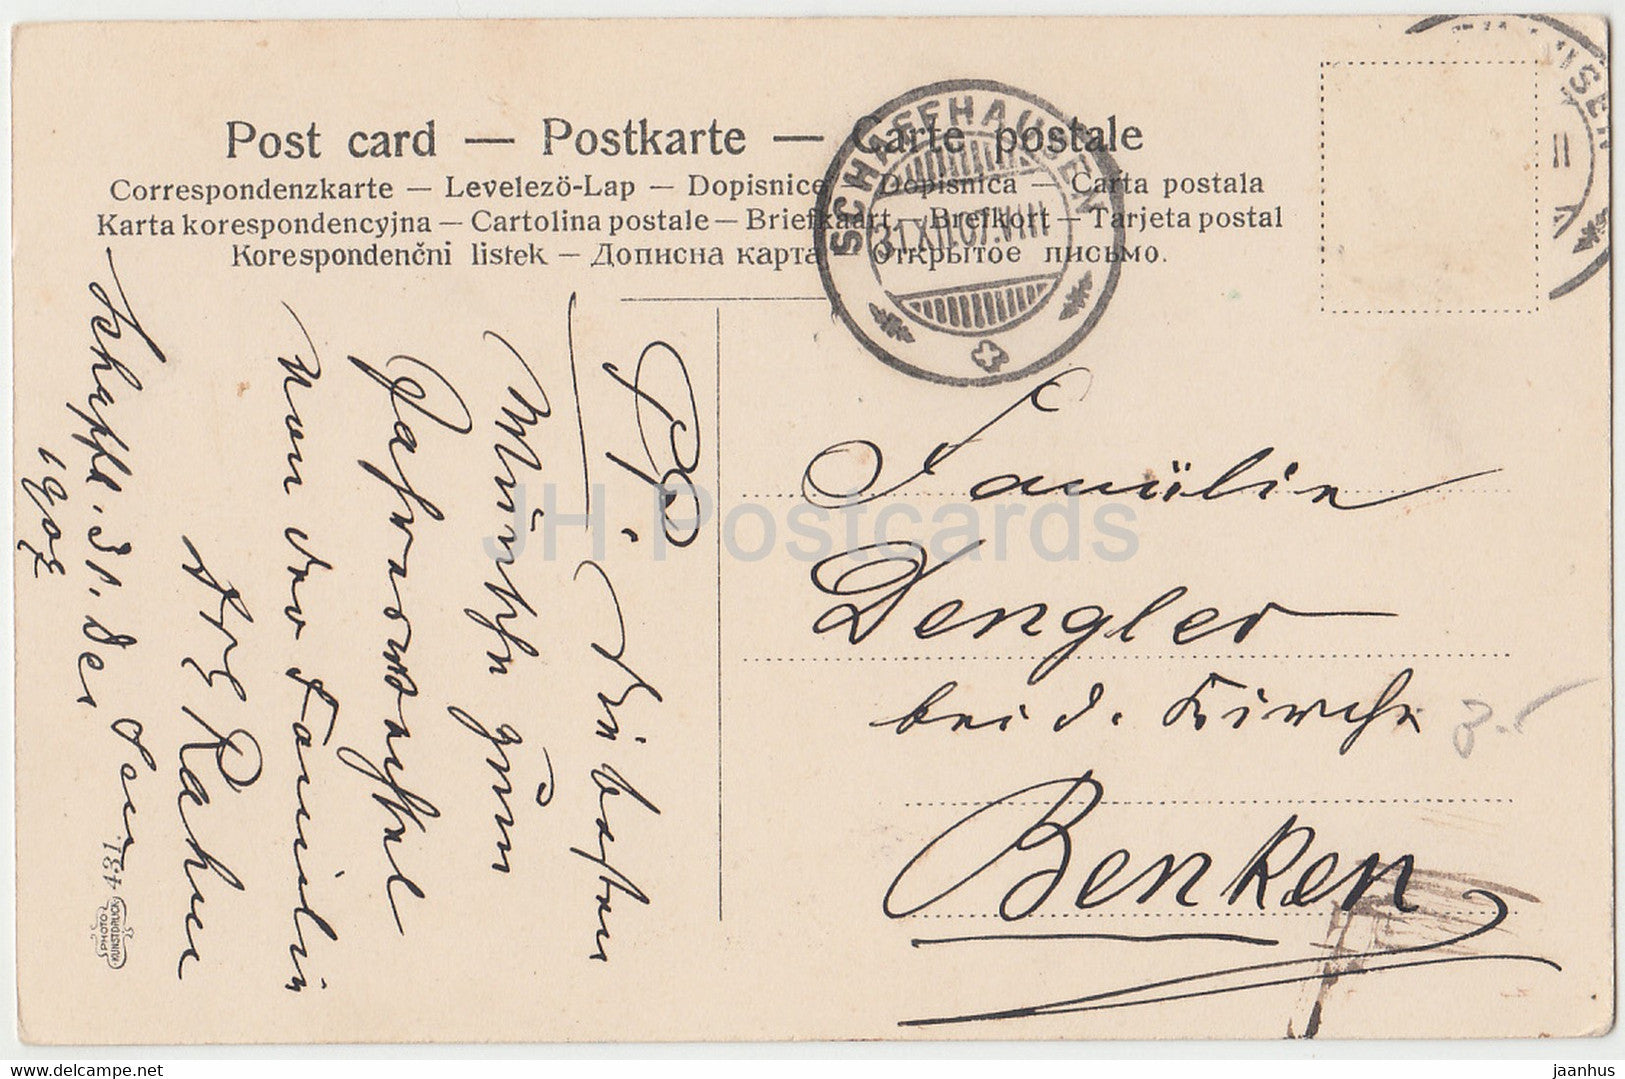 Post card — Postkarte — Carte postale
Correspondenzkarte — Levelező-Lap — Dopisnice — Dopisnica — Carta postala
Karta korespondencyjna — Cartolina postale — Briefkaart — Brefkort — Tarjeta postal
Korespondenčni listek — Дописна карта — Открытое письмо.
SCHAFFHAUSEN
31.XII.07.VIII
USEN
P. P.
Die besten
Wünsche zum
Jahreswechsel
von der Familie
Schaffh. 31. Dez
1907
Familie
Dengler
bei d. Kirche
Benken
4341.
PHOTO
KUNSTDRUCK
JH Postcards
delcampe.net
jaanhus